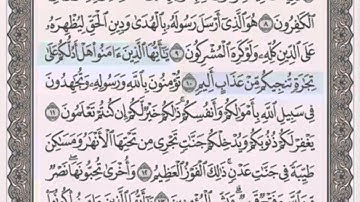 ٱلْكَٰفِرُونَ ٨ هُوَ ٱلَّذِىٓ أَرْسَلَ رَسُولَهُۥ بِٱلْهُدَىٰ وَدِينِ ٱلْحَقِّ لِيُظْهِرَهُۥ
عَلَى ٱلدِّينِ كُلِّهِۦ وَلَوْ كَرِهَ ٱلْمُشْرِكُونَ ٩ يَٰٓأَيُّهَا ٱلَّذِينَ ءَامَنُوا۟ هَلْ أَدُلُّكُمْ عَلَىٰ
تِجَٰرَةٍ تُنجِيكُم مِّنْ عَذَابٍ أَلِيمٍ ١٠ تُؤْمِنُونَ بِٱللَّهِ وَرَسُولِهِۦ وَتُجَٰهِدُونَ
فِى سَبِيلِ ٱللَّهِ بِأَمْوَٰلِكُمْ وَأَنفُسِكُمْ ذَٰلِكُمْ خَيْرٌ لَّكُمْ إِن كُنتُمْ تَعْلَمُونَ ١١
يَغْفِرْ لَكُمْ ذُنُوبَكُمْ وَيُدْخِلْكُمْ جَنَّٰتٍ تَجْرِى مِن تَحْتِهَا ٱلْأَنْهَٰرُ وَمَسَٰكِنَ
طَيِّبَةً فِى جَنَّٰتِ عَدْنٍ ذَٰلِكَ ٱلْفَوْزُ ٱلْعَظِيمُ ١٢ وَأُخْرَىٰ تُحِبُّونَهَا نَصْرٌ